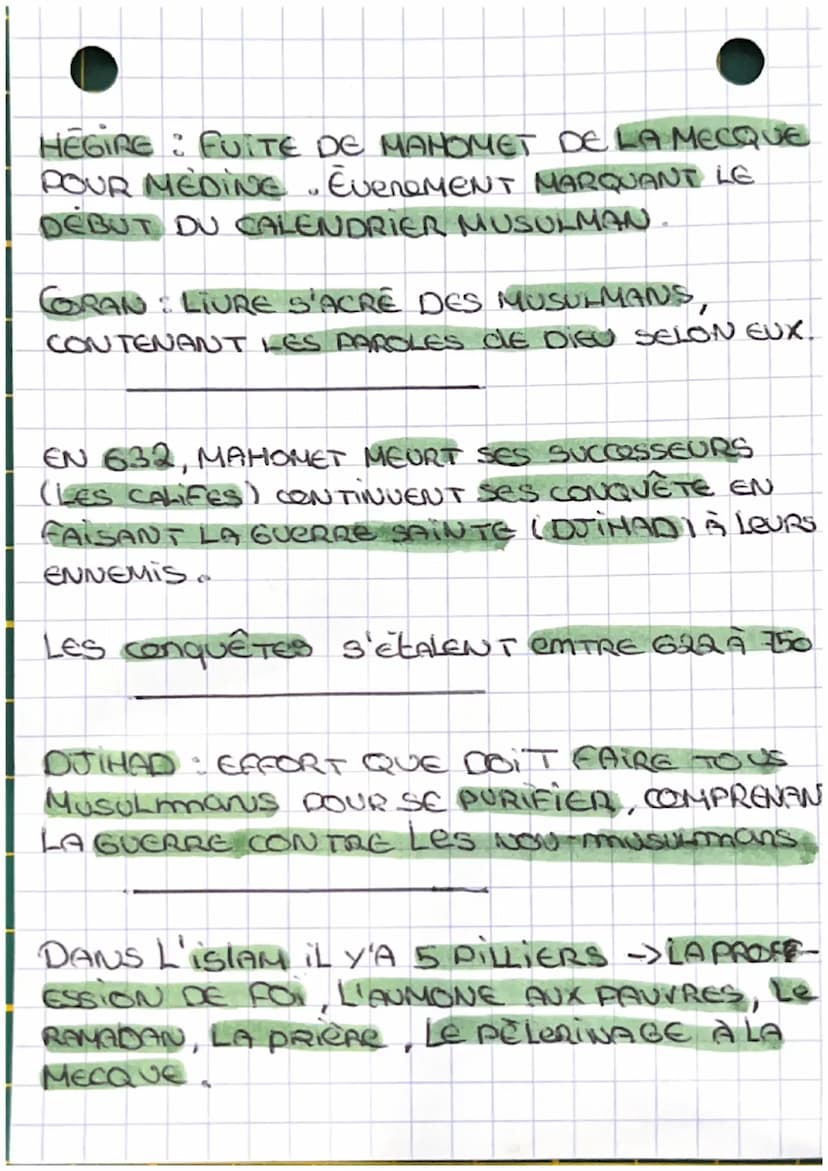 HÉGIRE : FUITE DE MAHOMET DE LA MECQUE
POUR MÉDINE . ÉVENEMENT MARQUANT LE
DÉBUT DU CALENDRIER MUSULMAN.
CORAN : LIVRE S'ACRÉ DES MUSULMANS,
CONTENANT LES PAROLES DE DIEU SELON EUX.
EN 632, MAHOMET MEURT SES SUCCESSEURS
(LES CALIFES) CONTINUENT SES CONQUÊTE EN
FAISANT LA GUERRE SAINTE (DJIHAD) À LEURS
ENNEMIS.
LES CONQUÊTES S'ÉTALENT EMTRE 622 À 750
DJIHAD : EFFORT QUE DOIT FAIRE TOUS
MUSULMANS POUR SE PURIFIER, COMPRENAN
LA GUERRE CONTRE LES NON-MUSULMANS
DANS L'ISLAM IL Y'A 5 PILLIERS -> LA PROFF-
ESSION DE FOI, L'AUMONE AUX PAUVRES, LE
RAMADAN, LA PRIÈRE, LE PÈLERINAGE À LA
MECQUE.